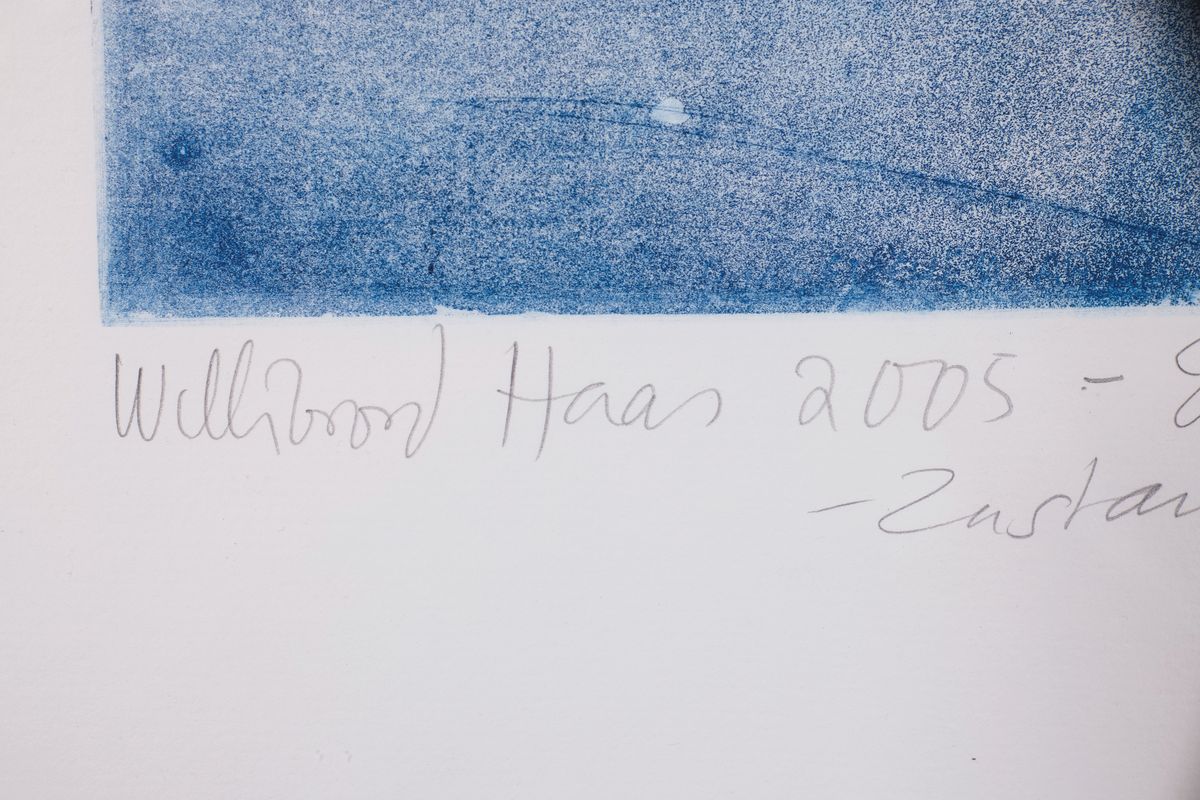 Willibrord Haas 2005 -
- Zustan